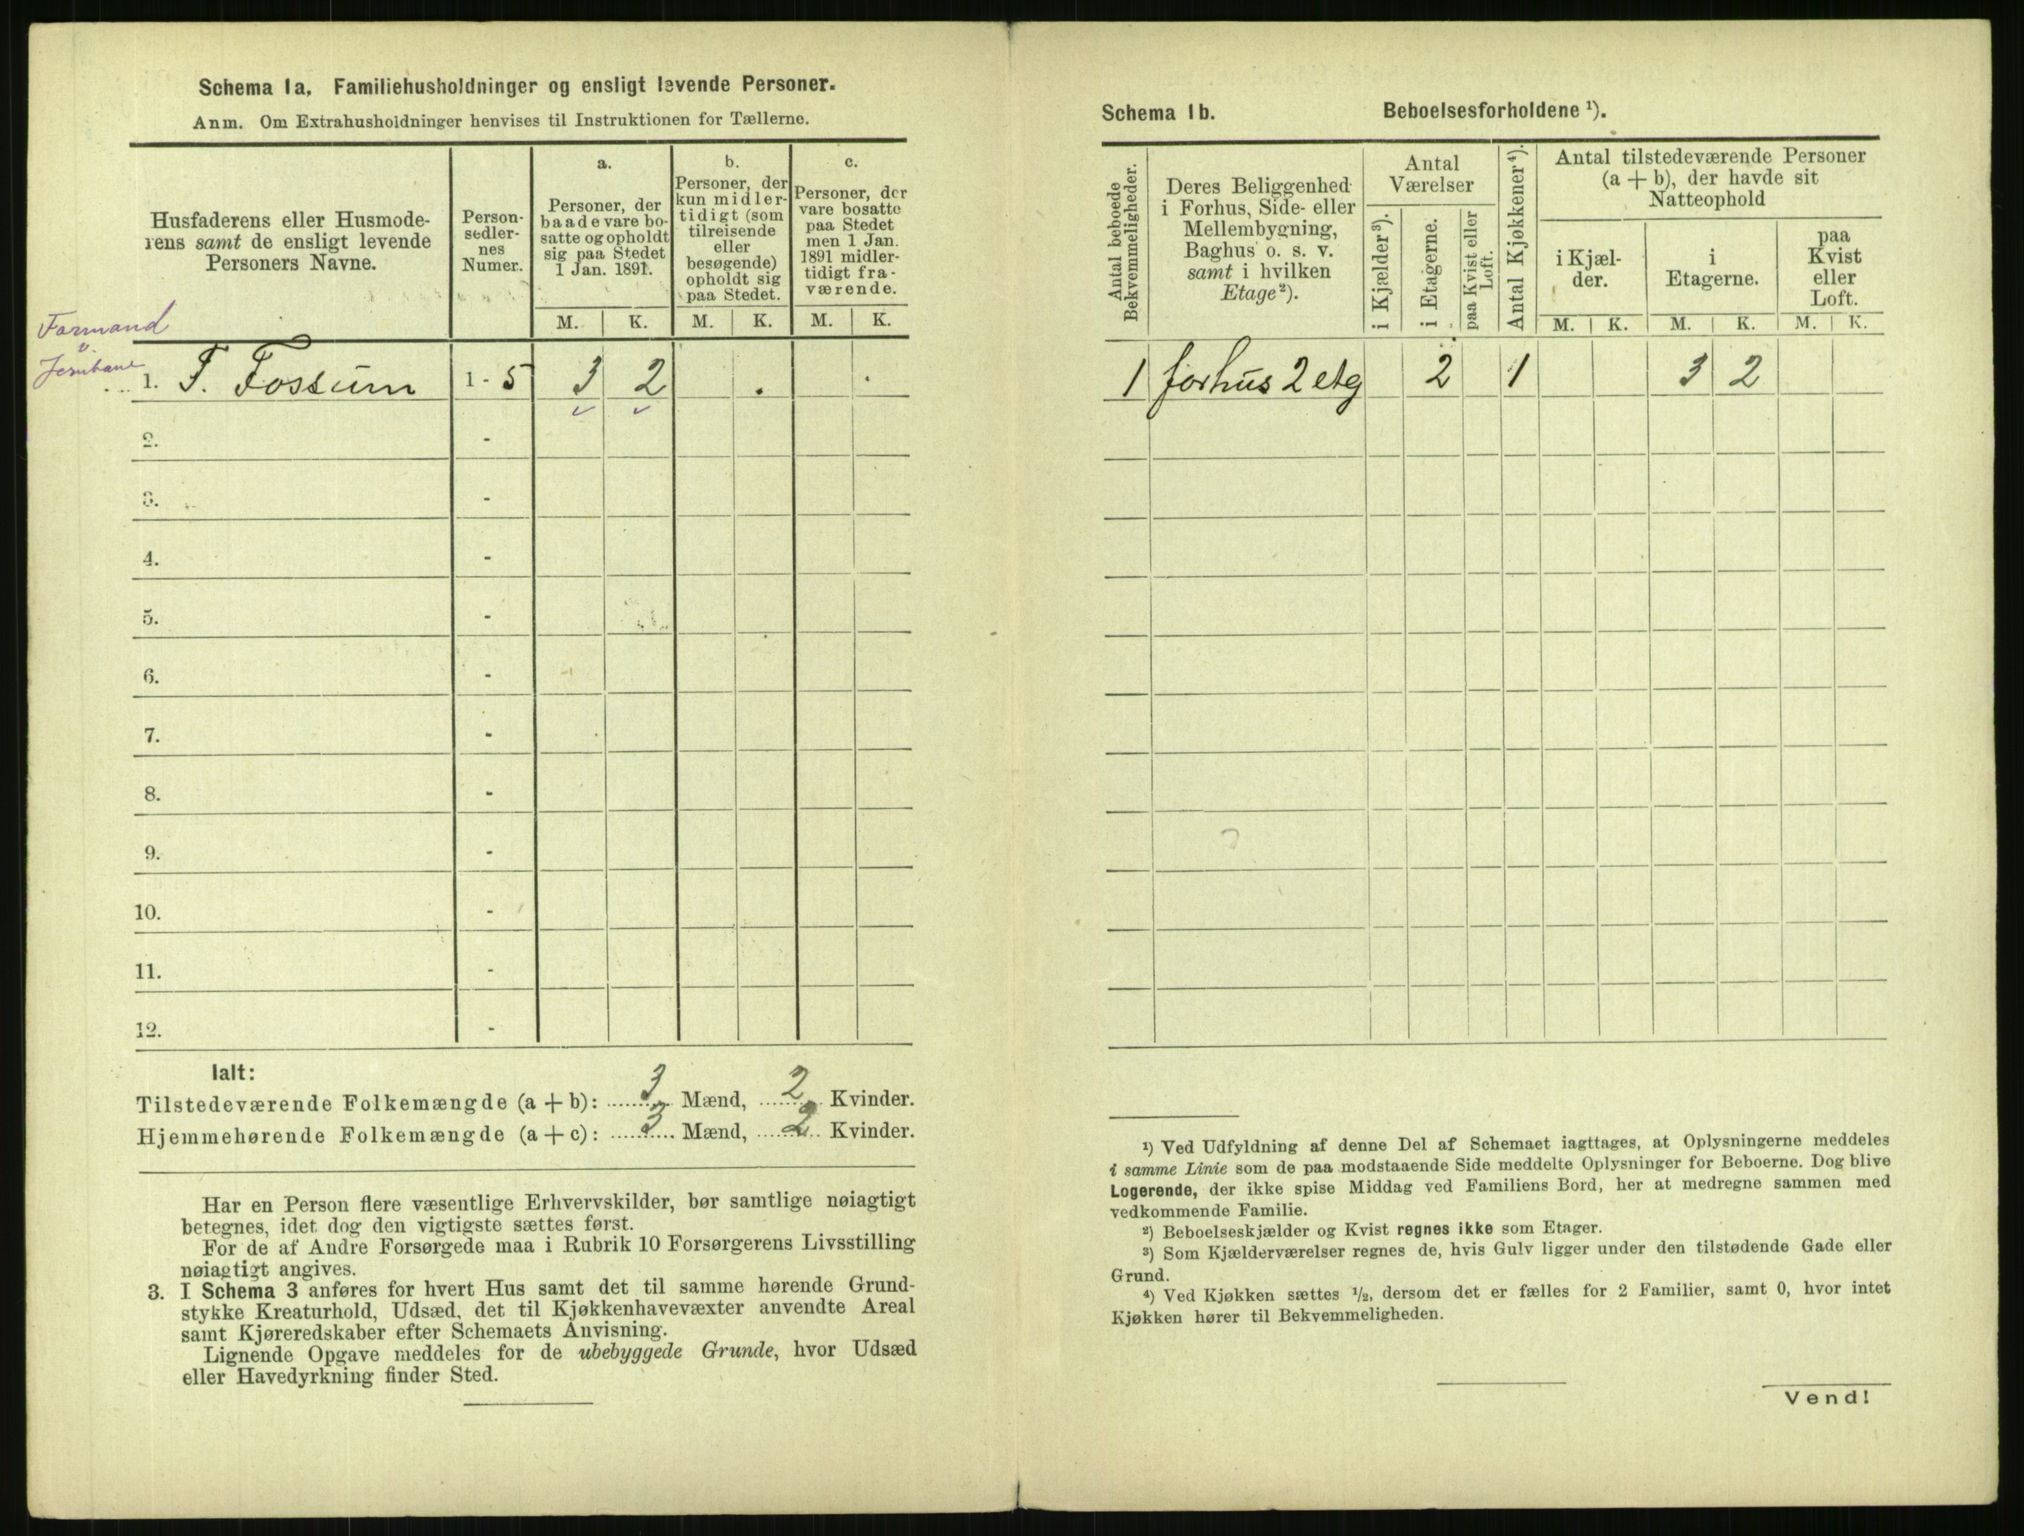 Schema 1a. Familiehusholdninger og ensligt levende Personer.
Anm. Om Extrahusholdninger henvises til Instruktionen for Tællerne.
Husfaderens eller Husmode-
rens samt de ensligt levende
Personers Navne.
Person-
sedler-
nes
Numer.
a.
Personer, der
baade vare bo-
satte og opholdt
sig paa Stedet
1 Jan. 1891.
b.
Personer, der
kun midler-
tidigt (som
tilreisende
eller
besøgende)
opholdt sig
paa Stedet.
c.
Personer, der
vare bosatte
paa Stedet
men 1 Jan.
1891 midler-
tidigt fra-
værende.
M. K. M. K. M. K.
Formand
v.
Jernbane
1. T. Fossum 1 - 5 3 2
2. -
3. -
4. -
5. -
6. -
7. -
8. -
9. -
10. -
11. -
12. -
Ialt:
Tilstedeværende Folkemængde (a + b): 3 Mænd, 2 Kvinder.
Hjemmehørende Folkemængde (a + c): 3 Mænd, 2 Kvinder.
Har en Person flere væsentlige Erhvervskilder, bør samtlige nøiagtigt
betegnes, idet dog den vigtigste sættes først.
For de af Andre Forsørgede maa i Rubrik 10 Forsørgerens Livsstilling
nøiagtigt angives.
3. I Schema 3 anføres for hvert Hus samt det til samme hørende Grund-
stykke Kreaturhold, Udsæd, det til Kjøkkenhavevæxter anvendte Areal
samt Kjøreredskaber efter Schemaets Anvisning.
Lignende Opgave meddeles for de ubebyggede Grunde, hvor Udsæd
eller Havedyrkning finder Sted.
Schema 1b. Beboelsesforholdene ¹).
Antal beboede
Bekvemmeligheder.
Deres Beliggenhed
i Forhus, Side- eller
Mellembygning,
Baghus o. s. v.
samt i hvilken
Etage²).
Antal
Værelser
i Kjælder³).
i Etagerne.
paa Kvist eller
Loft.
Antal Kjøkkener⁴).
Antal tilstedeværende Personer
(a + b), der havde sit
Natteophold
i Kjæl-
der.
i
Etagerne.
paa
Kvist
eller
Loft.
M. K. M. K. M. K.
1 forhus 2 etg 2 1 3 2
¹) Ved Udfyldning af denne Del af Schemaet iagttages, at Oplysningerne meddeles
i samme Linie som de paa modstaaende Side meddelte Oplysninger for Beboerne. Dog blive
Logerende, der ikke spise Middag ved Familiens Bord, her at medregne sammen med
vedkommende Familie.
²) Beboelseskjælder og Kvist regnes ikke som Etager.
³) Som Kjælderværelser regnes de, hvis Gulv ligger under den tilstødende Gade eller
Grund.
⁴) Ved Kjøkken sættes ½, dersom det er fælles for 2 Familier, samt 0, hvor intet
Kjøkken hører til Bekvemmeligheden.
Vend!